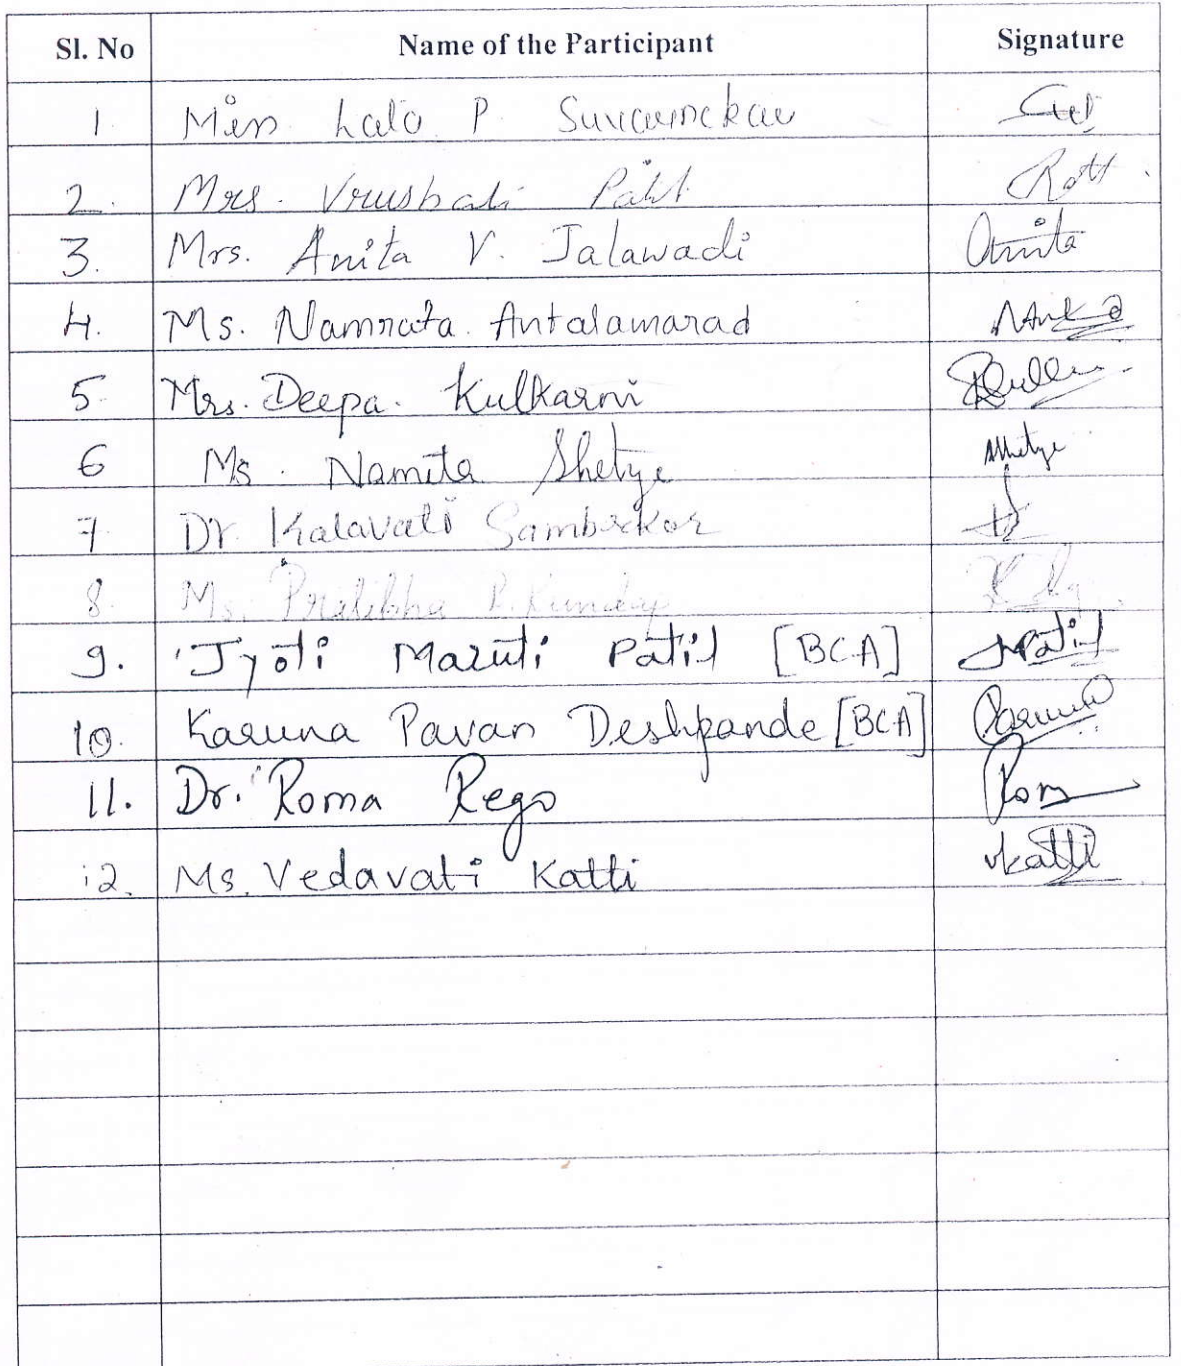 Sl. No Name of the Participant Signature
1 Miss Lala P. Suvarnekar
2. Mrs. Vrushali Patil
3. Mrs. Anita V. Jalawadi Anita
4. Ms. Namrata Antalamarad
5. Mrs. Deepa Kulkarni
6 Ms. Namita Shetye Shetye
7 Dr. Kalavati Sambrekar
8. Ms. Pratibha P.
9. Jyoti Maruti Patil [BCA] JPatil
10. Karuna Pavan Deshpande [BCA] Karuna
11. Dr. Roma Rego Roma
12. Ms. Vedavati Katti vkatti